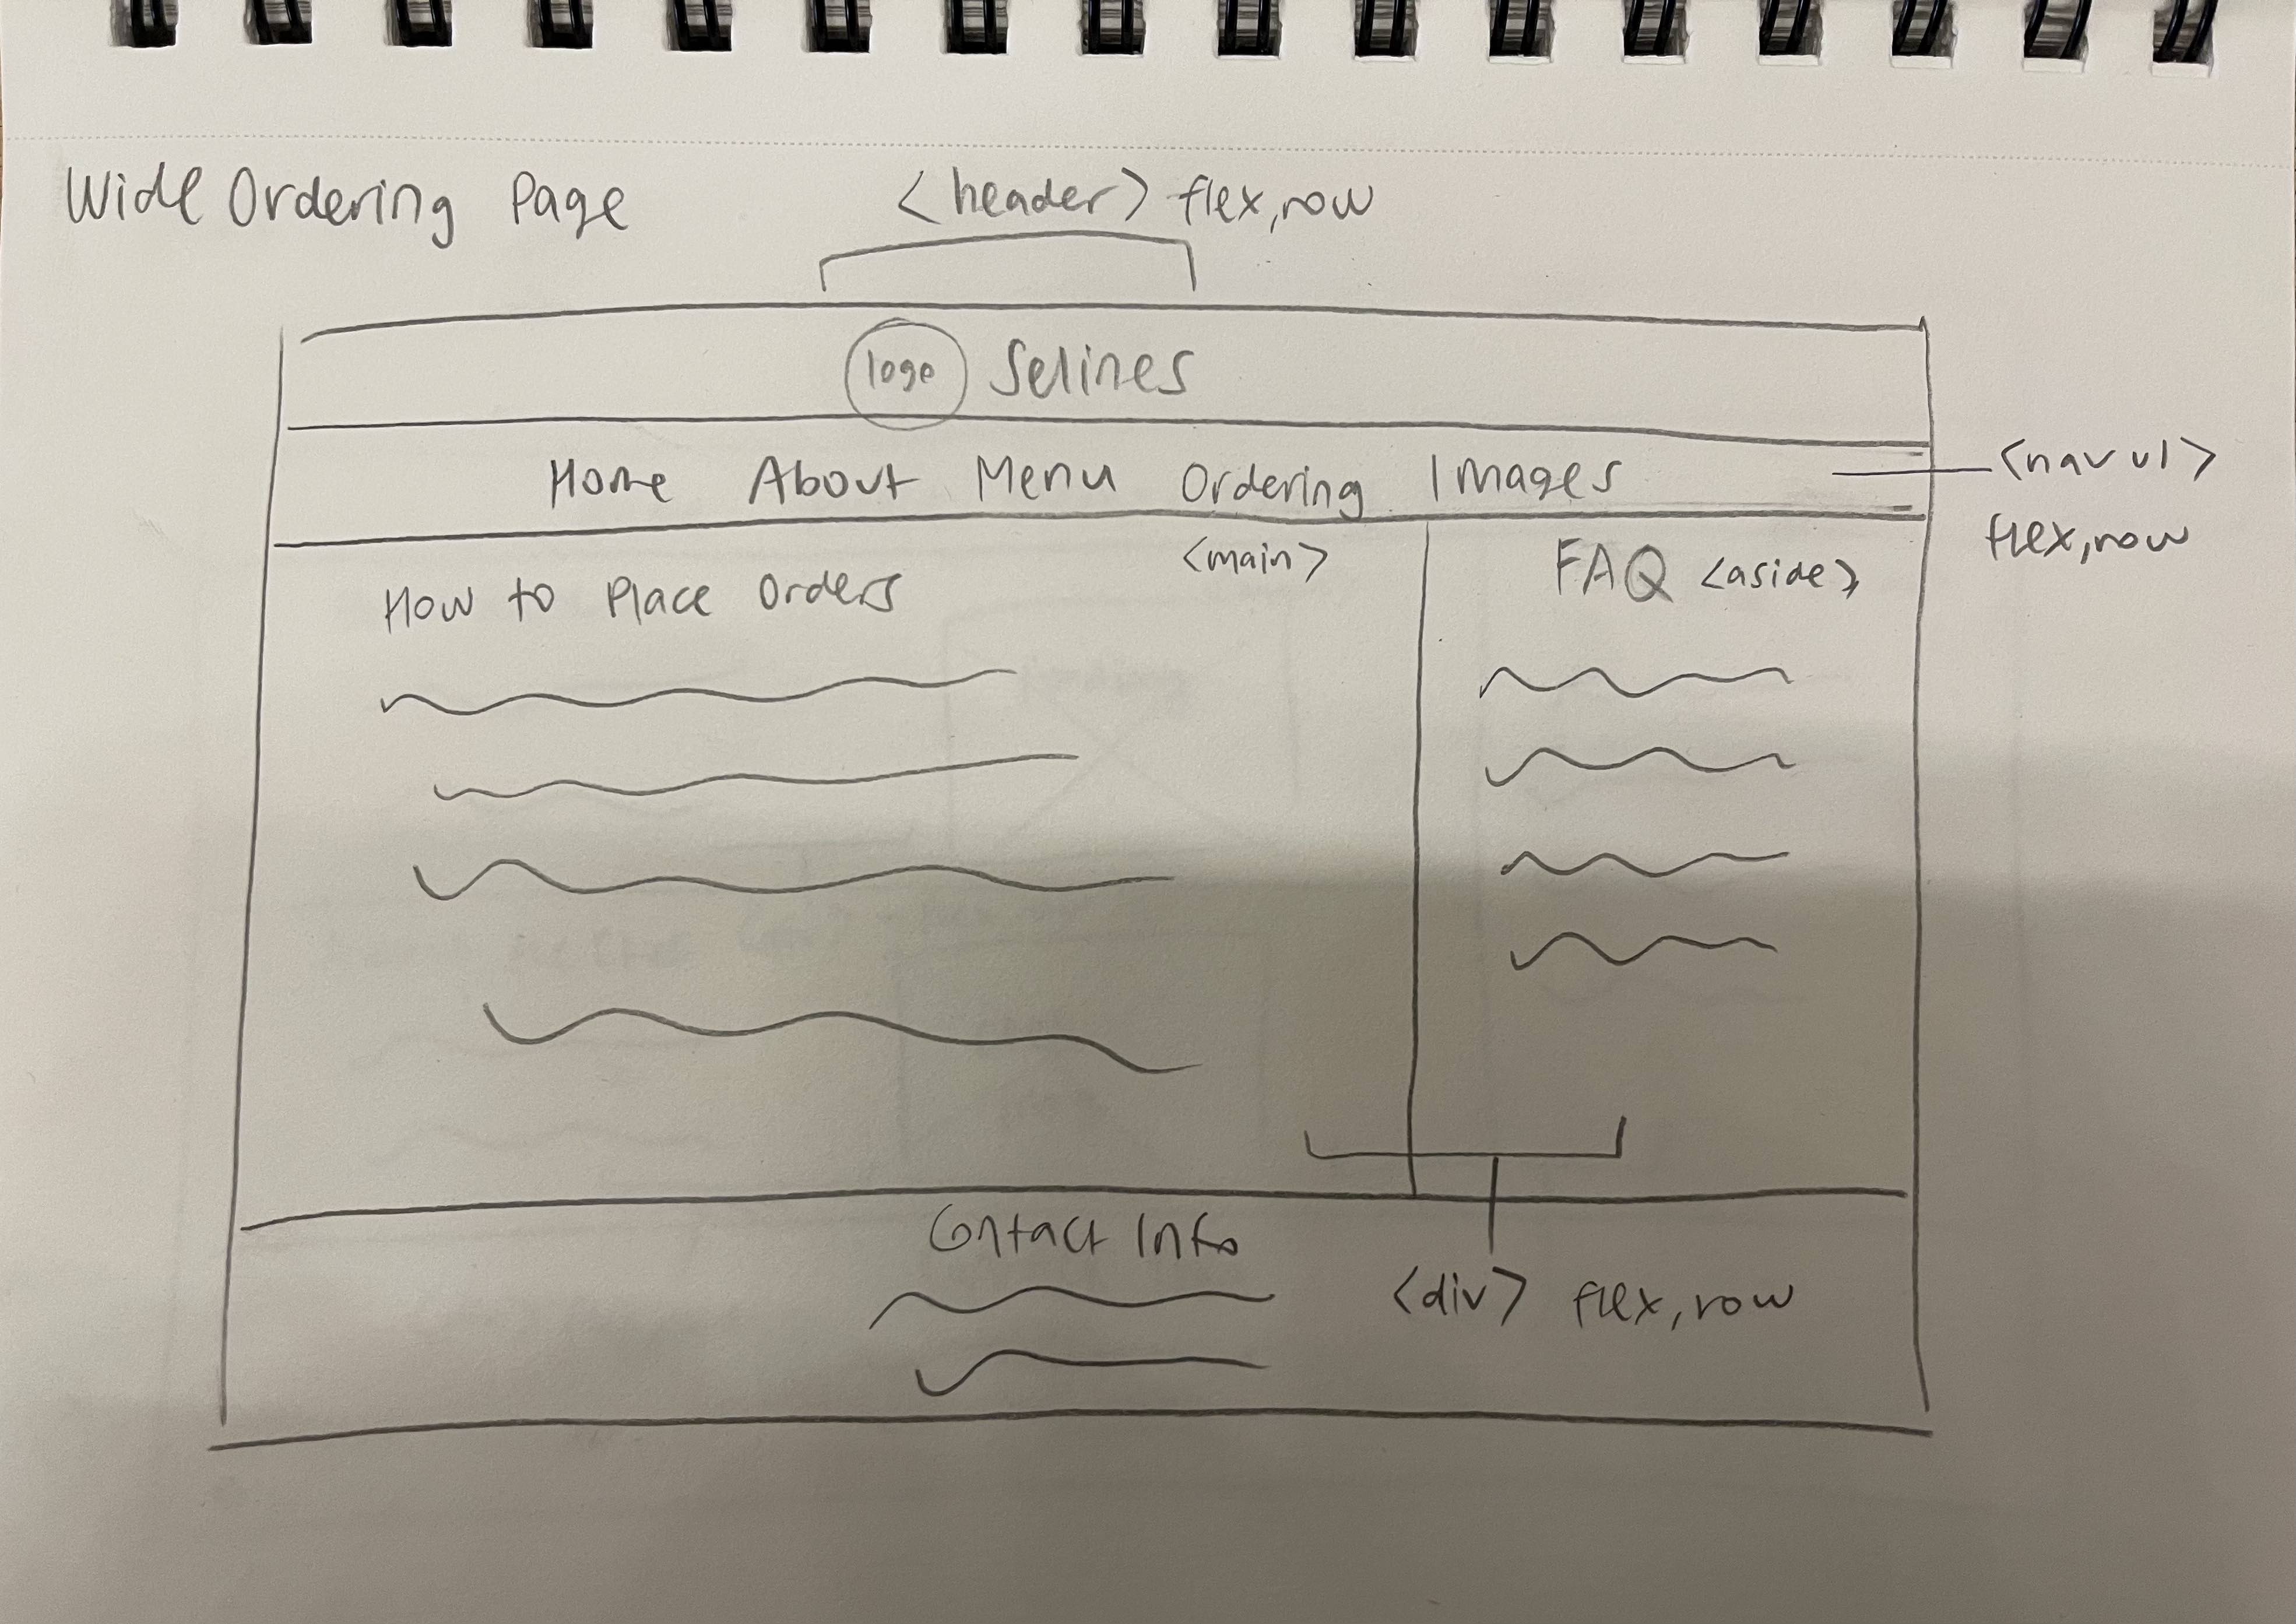 Wide Ordering Page
<header> flex,row
logo Selines
Home About Menu Ordering Images
<nav ul>
flex,row
<main>
How to Place Orders
FAQ <aside>
Contact Info
<div> flex,row